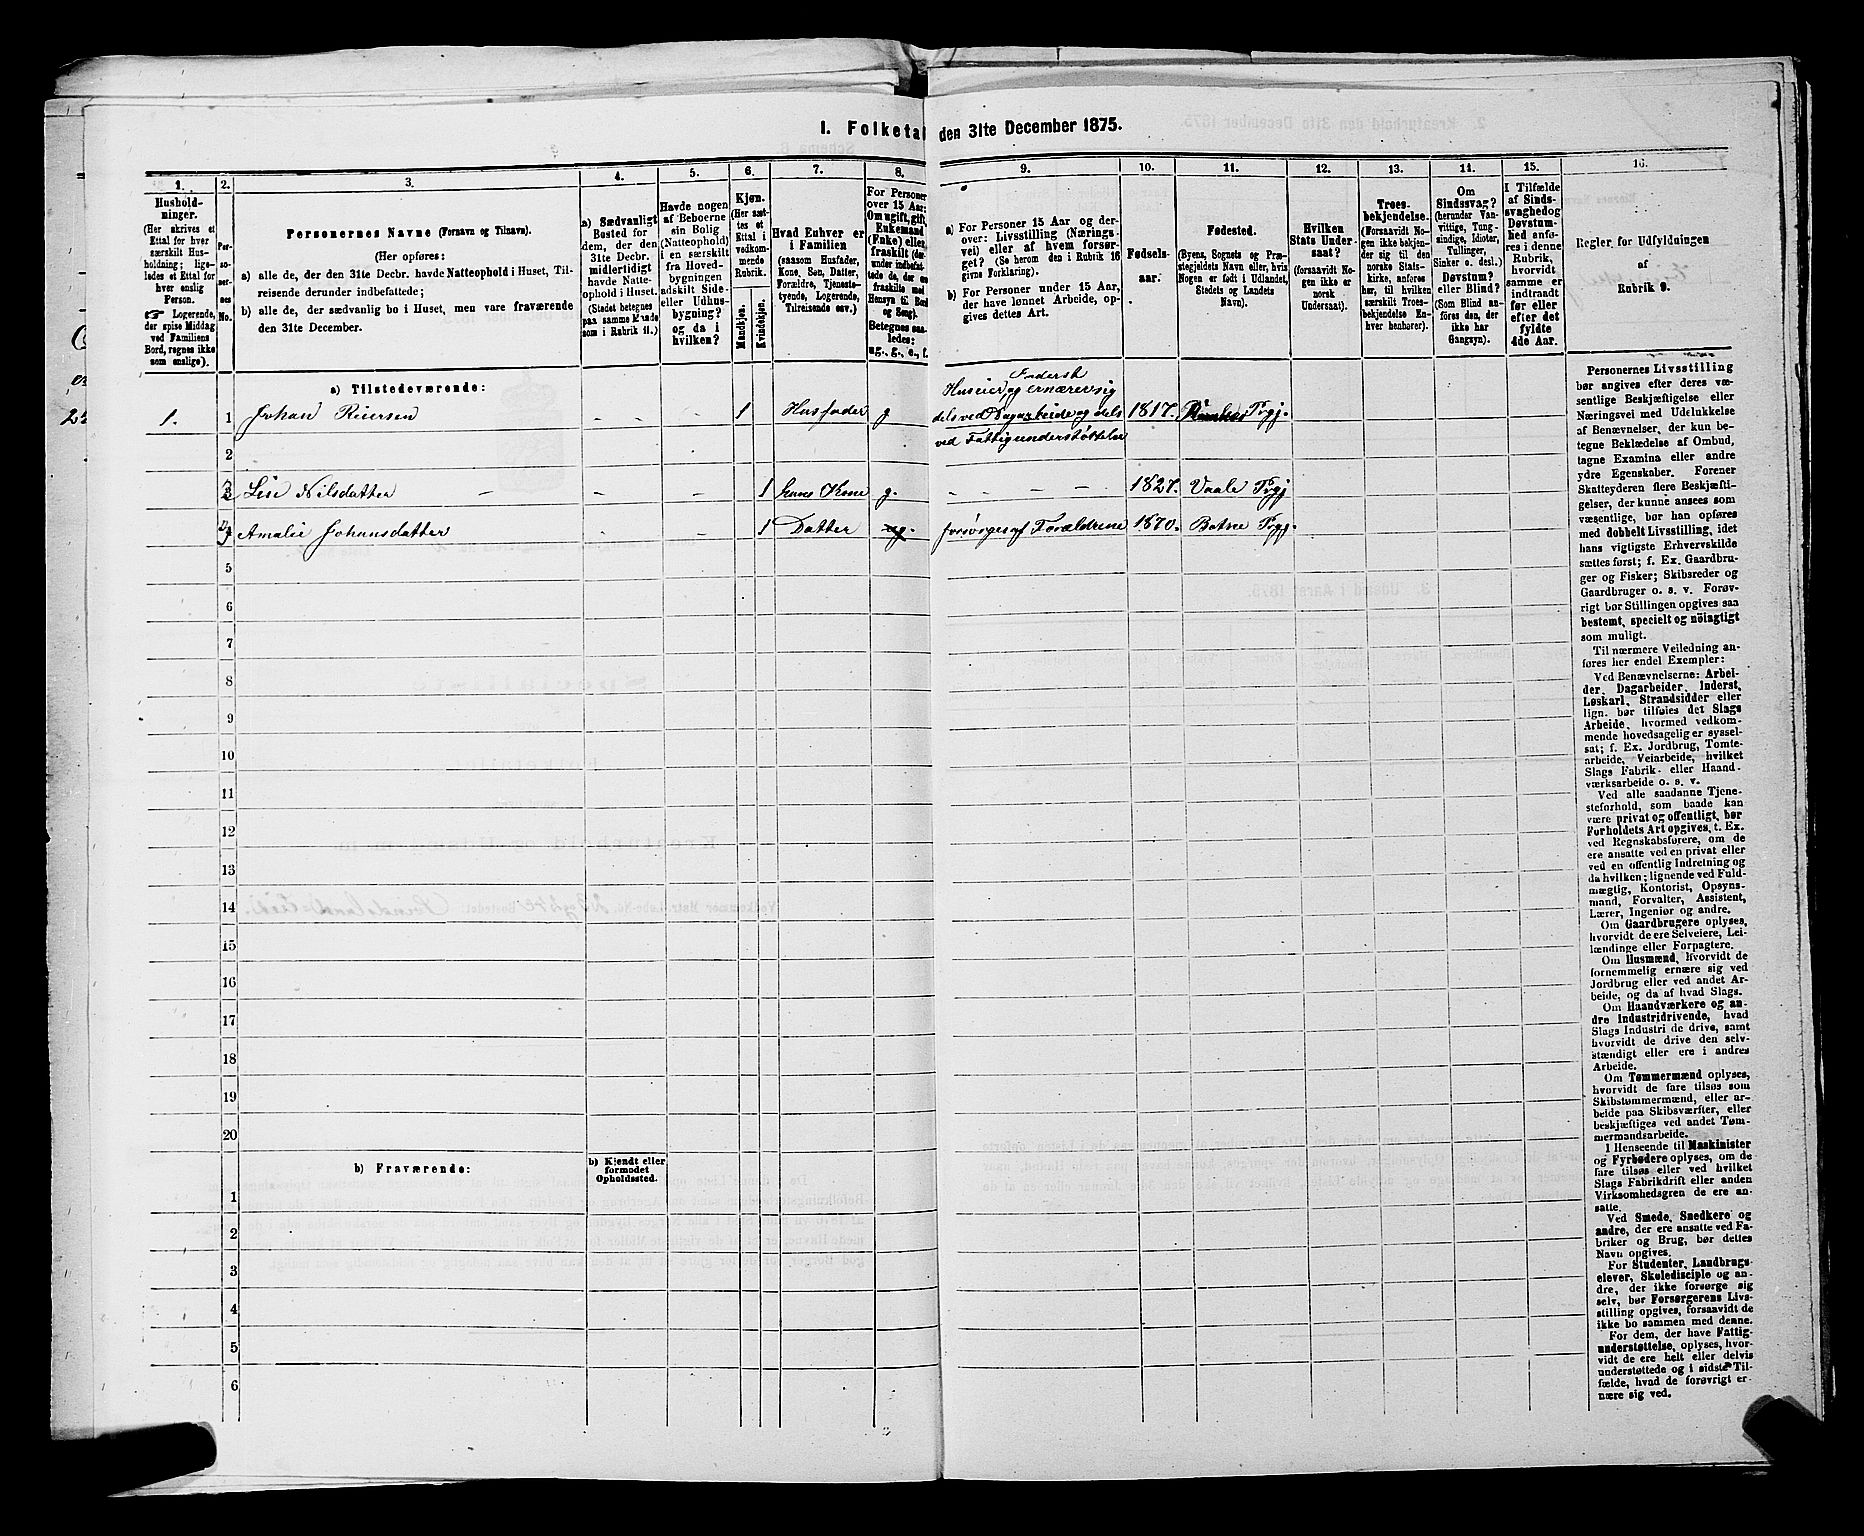 I. Folketal den 31te December 1875.
1. 2. 3. 4. 5. 6. 7. 8. 9. 10. 11. 12. 13. 14. 15. 16.
Hushold-
ninger.
(Her skrives et
Ettal for hver
særskilt Hus-
holdning; lige-
ledes et Ettal for
hver enslig
Person.
☞ Logerende,
der spise Middag
ved Familiens
Bord, regnes ikke
som enslige).
Per-
so-
ner-
nes
No.
Personernes Navne (Fornavn og Tilnavn).
(Her opføres:
a) alle de, der den 31te Decbr. havde Natteophold i Huset, Til-
reisende derunder indbefattede;
b) alle de, der sædvanlig bo i Huset, men vare fraværende
den 31te December.
a) Sædvanligt
Bosted for
dem, der den
31te Decbr.
midlertidigt
havde Natte-
ophold i Huset.
(Stedet betegnes
paa samme Maade
som i Rubrik 11.)
Havde nogen
af Beboerne
sin Bolig
(Natteophold)
i en særskilt
fra Hoved-
bygningen
adskilt Side-
eller Udhus-
bygning?
og da i
hvilken?
Kjøn.
(Her sæt-
tes et
Ettal i
vedkom-
mende
Rubrik.
Mandkjøn.
Kvindekjøn.
Hvad Enhver er
i Familien
(saasom Husfader,
Kone, Søn, Datter,
Forældre, Tjeneste-
tyende, Logerende,
Tilreisende osv.)
For Personer
over 15 Aar:
Om ugift, gift,
Enkemand
(Enke) eller
fraskilt (der-
under indbefat-
tede de, der ere
fraskilte med
Hensyn til Bord
og Seng).
Betegnes saa-
ledes:
ug., g., e., f.
a) For Personer 15 Aar og der-
over: Livsstilling (Nærings-
vei) eller af hvem forsør-
get? (Se herom den i Rubrik 16
givne Forklaring).
b) For Personer under 15 Aar,
der have lønnet Arbeide, op-
gives dettes Art.
Fødsels-
aar.
Fødested.
(Byens, Sognets og Præ-
stegjeldets Navn eller, hvis
Nogen er født i Udlandet,
Stedets og Landets
Navn).
Hvilken
Stats Under-
saat?
(forsaavidt No-
gen ikke er
norsk
Undersaat).
Troes-
bekjendelse.
(Forsaavidt No-
gen ikke bekjen-
der sig til den
norske Stats-
kirke, anføres
her, til hvilken
særskilt Troes-
bekjendelse En-
hver henhører).
Om
Sindssvag?
(herunder Van-
vittige, Tung-
sindige, Idioter,
Tullinger,
Sinker o. desl.)
Døvstum?
eller Blind?
(Som Blind an-
føres den, der
ikke har
Gangsyn).
I Tilfælde
af Sinds-
svaghed og
Døvstum-
hed anfø-
res i denne
Rubrik,
hvorvidt
samme er
indtraadt
før eller
efter det
fyldte
4de Aar.
Regler for Udfyldningen
af
Rubrik 9.
a) Tilstedeværende:
1. 1 Johan Riersen - - 1 Husfader g Huseier og ernærer sig
dels ved Dagarbeide og dels 1817. Prgj.
2 ved Fattigunderstøttelse
3 Lise Nilsdatter - - - 1 hans Kone g. - - - - 1827. Vaale Prgj
4 Amalie Johansdatter - - 1 Datter ug. forsørges af Forældrene 1870. Botne Prgj.
5
6
7
8
9
10
11
12
13
14
15
16
17
18
19
20
b) Fraværende:
b) Kjendt eller
formodet
Opholdssted.
1
2
3
4
5
6
Personernes Livsstilling
bør angives efter deres væ-
sentlige Beskjæftigelse eller
Næringsvei med Udelukkelse
af Benævnelser, der kun be-
tegne Beklædelse af Ombud,
tagne Examina eller andre
ydre Egenskaber. Forener
Skatteyderen flere Beskjæfti-
gelser, der kunne ansees som
væsentlige, bør han opføres
med dobbelt Livsstilling, idet
hans vigtigste Erhvervskilde
sættes først; f. Ex. Gaardbru-
ger og Fisker; Skibsreder og
Gaardbruger o. s. v. Forøv-
rigt bør Stillingen opgives saa
bestemt, specielt og nöiagtigt
som muligt.
Til nærmere Veiledning an-
føres her endel Exempler:
Ved Benævnelserne: Arbei-
der, Dagarbeider, Inderst,
Løskarl, Strandsidder eller
lign. bør tilføies det Slags
Arbeide, hvormed vedkom-
mende hovedsagelig er syssel-
sat; f. Ex. Jordbrug, Tomte-
arbeide, Veiarbeide, hvilket
Slags Fabrik- eller Haand-
værksarbeide o. s. v.
Ved alle saadanne Tjene-
steforhold, som baade kan
være privat og offentligt, bør
Forholdets Art opgives, t. Ex.
ved Regnskabsførere, om de
ere ansatte ved en privat eller
ved en offentlig Indretning og
da hvilken; lignende ved Fuld-
mægtig, Kontorist, Opsyns-
mand, Forvalter, Assistent,
Lærer, Ingeniør og andre.
Om Gaardbrugere oplyses,
hvorvidt de ere Selveiere, Lei-
lændinge eller Forpagtere.
Om Husmænd, hvorvidt de
fornemmelig ernære sig ved
Jordbrug eller ved andet Ar-
beide, og da af hvad Slags.
Om Haandværkere og an-
dre Industridrivende, hvad
Slags Industri de drive, samt
hvorvidt de drive den selv-
stændigt eller ere i andres
Arbeide.
Om Tømmermænd oplyses,
hvorvidt de fare tilsøs som
Skibstømmermænd, eller ar-
beide paa Skibsværfter, eller
beskjæftiges ved andet Tøm-
mermandsarbeide.
I Henseende til Maskinister
og Fyrbødere oplyses, om de
fare tilsøs eller ved hvilket
Slags Fabrikdrift eller anden
Virksomhedsgren de ere an-
satte.
Ved Smede, Snedkere og
andre, der ere ansatte ved Fa-
briker og Brug, bør dettes
Navn opgives.
For Studenter, Landbrugs-
elever, Skoledisciple og an-
dre, der ikke forsørge sig
selv, bør Forsørgerens Livs-
stilling opgives, forsaavidt de
ikke bo sammen med denne.
For dem, der have Fattig-
understøttelse, oplyses, hvor-
vidt de ere helt eller delvis
understøttede og i sidste Til-
fælde, hvad de forøvrigt er-
nære sig ved.